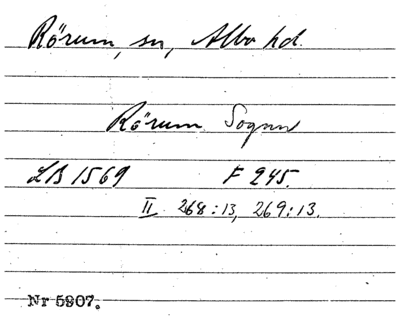 Rörum, sn, Albo hd.
Rörum Sognn
LB 1569 F 245.
II 268:13, 269:13.
Nr 5907.